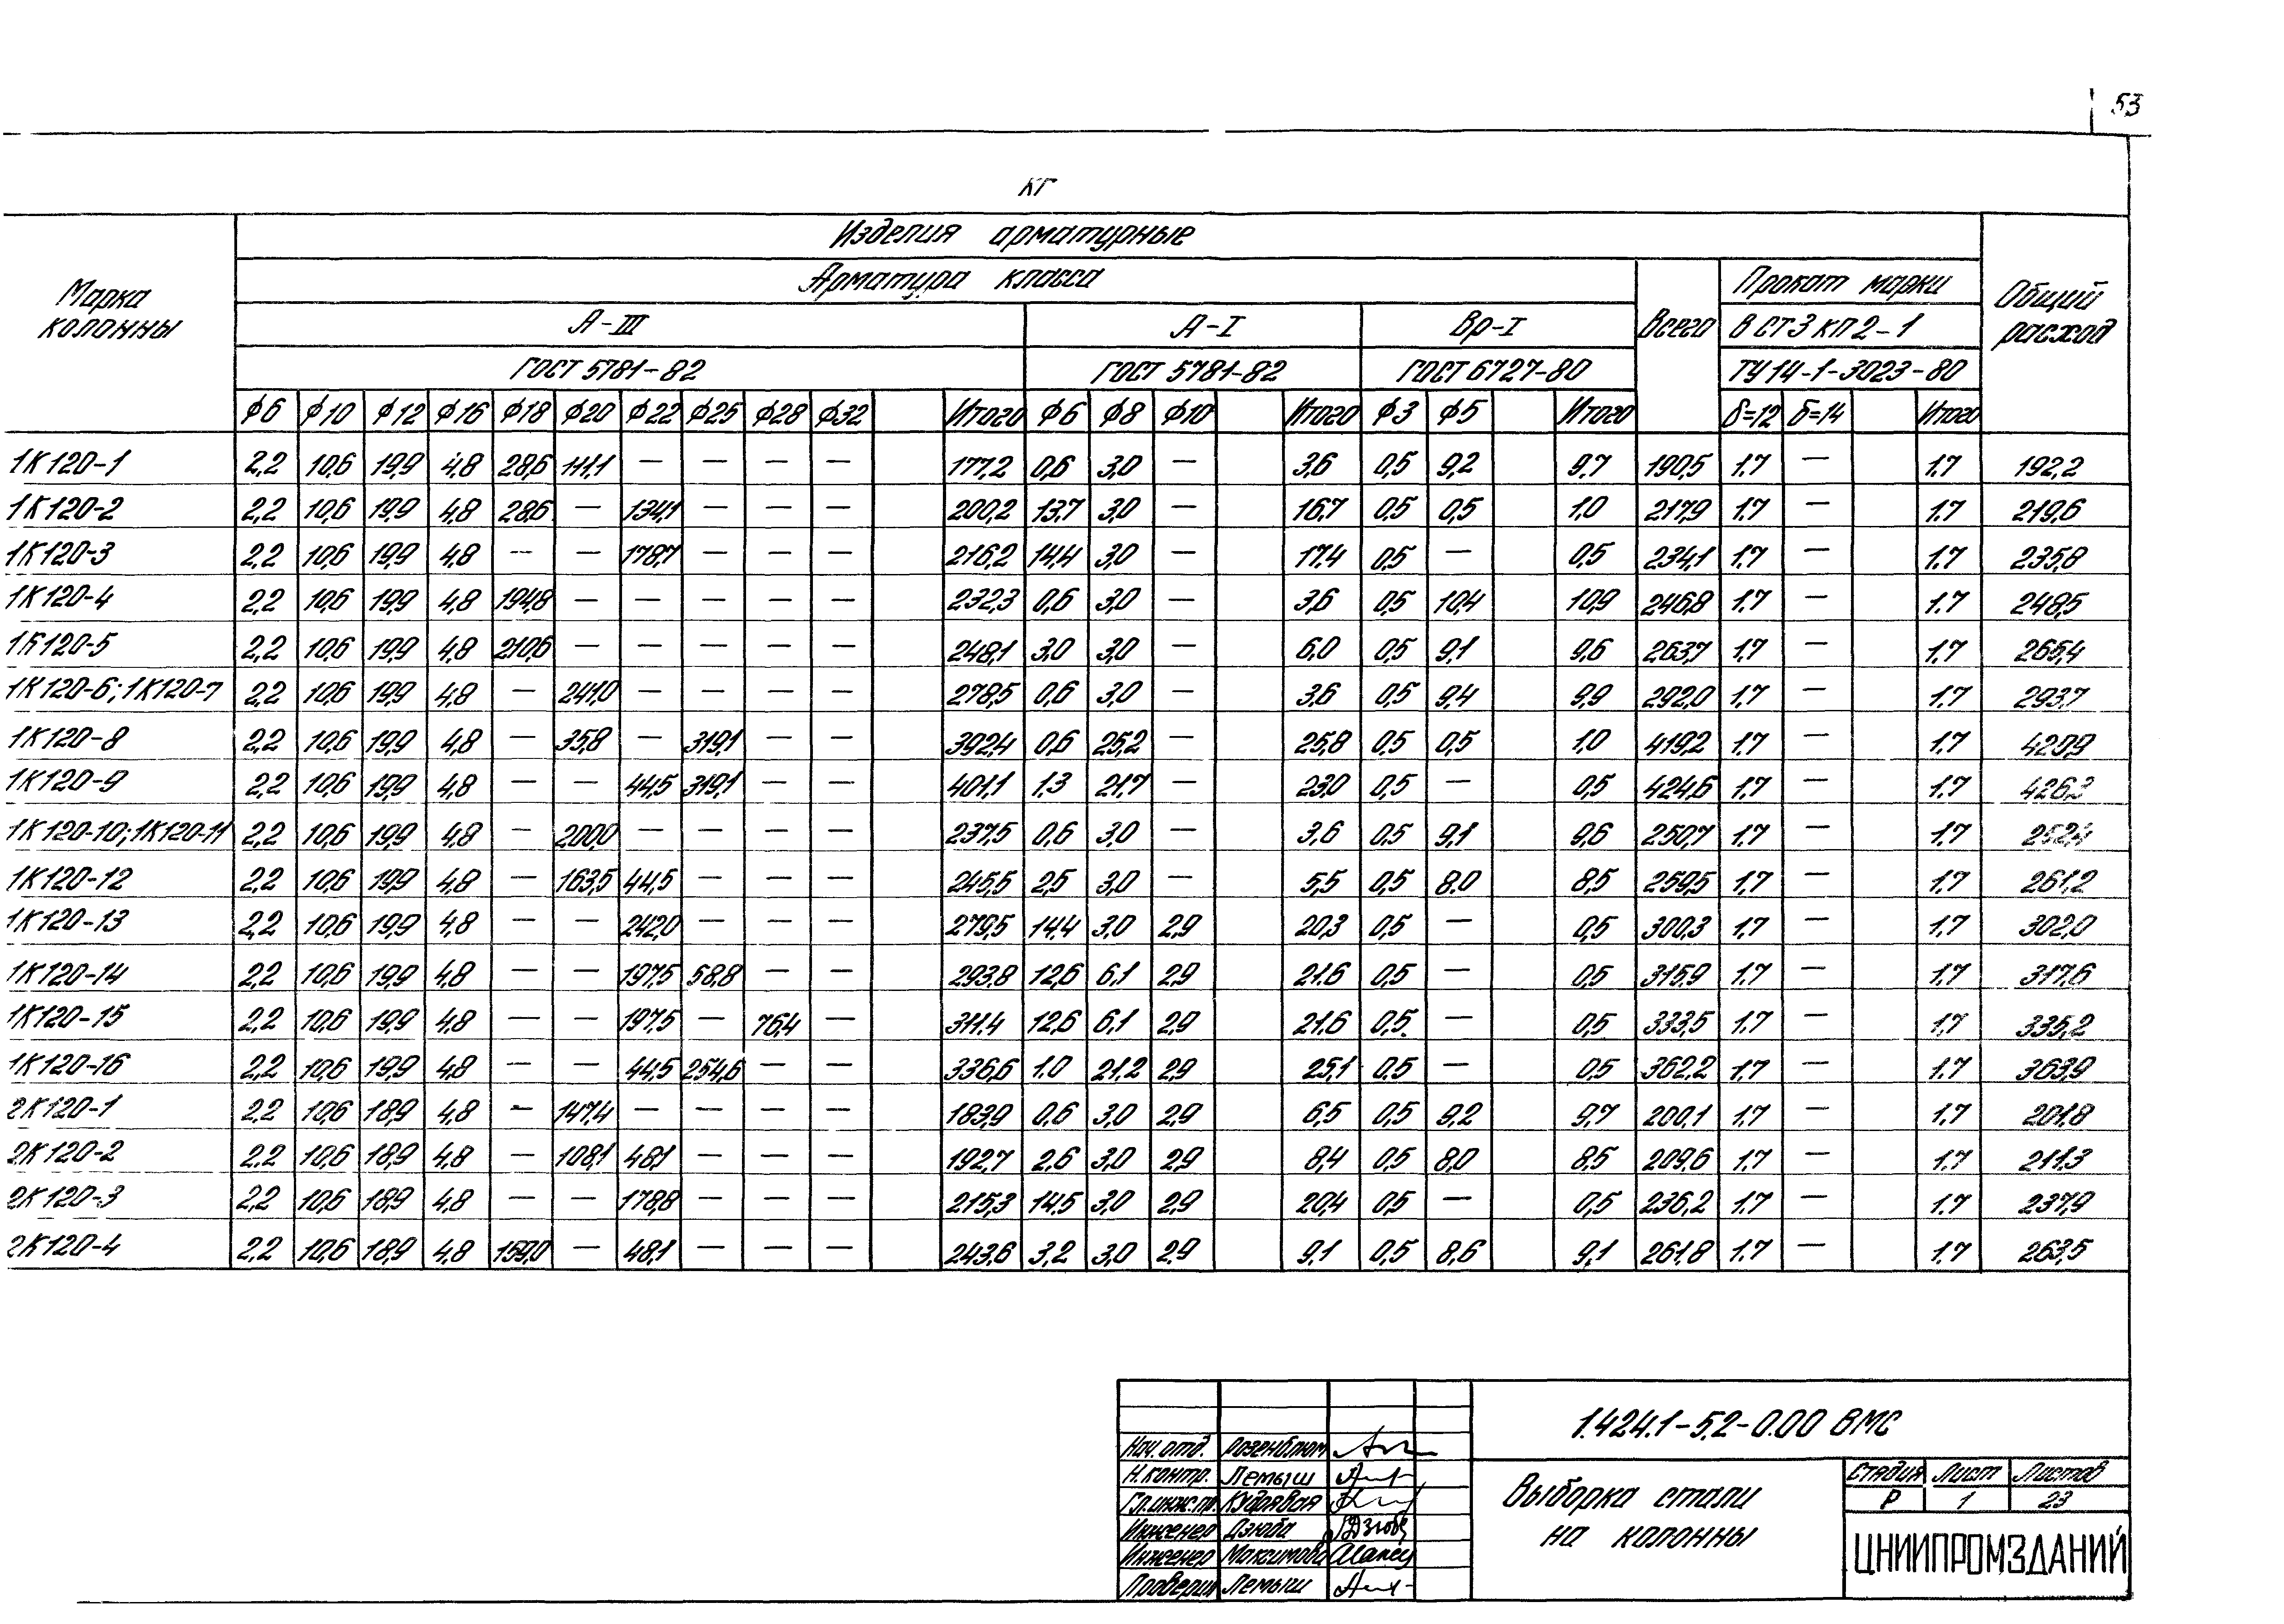 53
кг
Марка колонны
Изделия арматурные
Общий расход
Арматура класса
Всего
Прокат марки
А-III
А-I
Вр-I
ВСт3кп2-1
ГОСТ 5781-82
ГОСТ 5781-82
ГОСТ 6727-80
ТУ14-1-3023-80
ф6 ф10 ф12 ф16 ф18 ф20 ф22 ф25 ф28 ф32 Итого ф6 ф8 ф10 Итого ф3 ф5 Итого δ=12 δ=14 Итого
1К120-1 2,2 10,6 19,9 4,8 28,6 111,1 — — — — 177,2 0,6 3,0 — 3,6 0,5 9,2 9,7 190,5 1.7 — 1.7 192,2
1К120-2 2,2 10,6 19,9 4,8 28,6 — 134,1 — — — 200,2 13,7 3,0 — 16,7 0,5 0,5 1,0 217,9 1.7 — 1.7 219,6
1К120-3 2,2 10,6 19,9 4,8 — — 178,7 — — — 216,2 14,4 3,0 — 17,4 0,5 — 0,5 234,1 1.7 — 1.7 235,8
1К120-4 2,2 10,6 19,9 4,8 194,8 — — — — — 232,3 0,6 3,0 — 3,6 0,5 10,4 10,9 246,8 1.7 — 1.7 248,5
1К120-5 2,2 10,6 19,9 4,8 210,6 — — — — — 248,1 3,0 3,0 — 6,0 0,5 9,1 9,6 263,7 1.7 — 1.7 265,4
1К120-6; 1К120-7 2,2 10,6 19,9 4,8 — 241,0 — — — — 278,5 0,6 3,0 — 3,6 0,5 9,4 9,9 292,0 1.7 — 1.7 293,7
1К120-8 2,2 10,6 19,9 4,8 — 35,8 — 319,1 — — 392,4 0,6 25,2 — 25,8 0,5 0,5 1,0 419,2 1.7 — 1.7 420,9
1К120-9 2,2 10,6 19,9 4,8 — — 44,5 319,1 — — 401,1 1,3 21,7 — 23,0 0,5 — 0,5 424,6 1.7 — 1.7 426,3
1К120-10; 1К120-11 2,2 10,6 19,9 4,8 — 200,0 — — — — 237,5 0,6 3,0 — 3,6 0,5 9,1 9,6 250,7 1.7 — 1.7 252,4
1К120-12 2,2 10,6 19,9 4,8 — 163,5 44,5 — — — 245,5 2,5 3,0 — 5,5 0,5 8.0 8,5 259,5 1.7 — 1.7 261,2
1К120-13 2,2 10,6 19,9 4,8 — — 242,0 — — — 279,5 14,4 3,0 2,9 20,3 0,5 — 0,5 300,3 1.7 — 1.7 302,0
1К120-14 2,2 10,6 19,9 4,8 — — 197,5 58,8 — — 293,8 12,6 6,1 2,9 21.6 0,5 — 0,5 315,9 1.7 — 1.7 317,6
1К120-15 2,2 10,6 19,9 4,8 — — 197,5 — 76,4 — 311.4 12,6 6,1 2,9 21.6 0,5 — 0,5 333,5 1.7 — 1.7 335,2
1К120-16 2,2 10,6 19,9 4,8 — — 44,5 254,6 — — 336,6 1.0 21.2 2,9 25,1 0.5 — 0,5 362,2 1.7 — 1.7 363,9
2К120-1 2,2 10,6 18,9 4,8 — 147,4 — — — — 183,9 0,6 3,0 2,9 6,5 0,5 9,2 9,7 200,1 1.7 — 1.7 201,8
2К120-2 2,2 10,6 18,9 4,8 — 108,1 48,1 — — — 192,7 2,6 3,0 2,9 8,4 0,5 8,0 8,5 209,6 1.7 — 1.7 211,3
2К120-3 2,2 10,6 18,9 4,8 — — 178,8 — — — 215,3 14,5 3,0 2,9 20,4 0,5 — 0,5 236,2 1.7 — 1.7 237,9
2К120-4 2,2 10,6 18,9 4,8 159,0 — 48,1 — — — 243,6 3,2 3,0 2,9 9,1 0,5 8,6 9,1 261,8 1.7 — 1.7 263,5
1.424.1-5.2-0.00 ВМС
Нач. отд. Розенблюм
Н.контр. Лемыш
Гл.инж.пр. Кудрявая
Инженер Дзюба Дзюба
Инженер Максимова
Проверил Лемыш
Выборка стали
на колонны
Стадия Лист Листов
Р 1 23
ЦНИИПРОМЗДАНИЙ